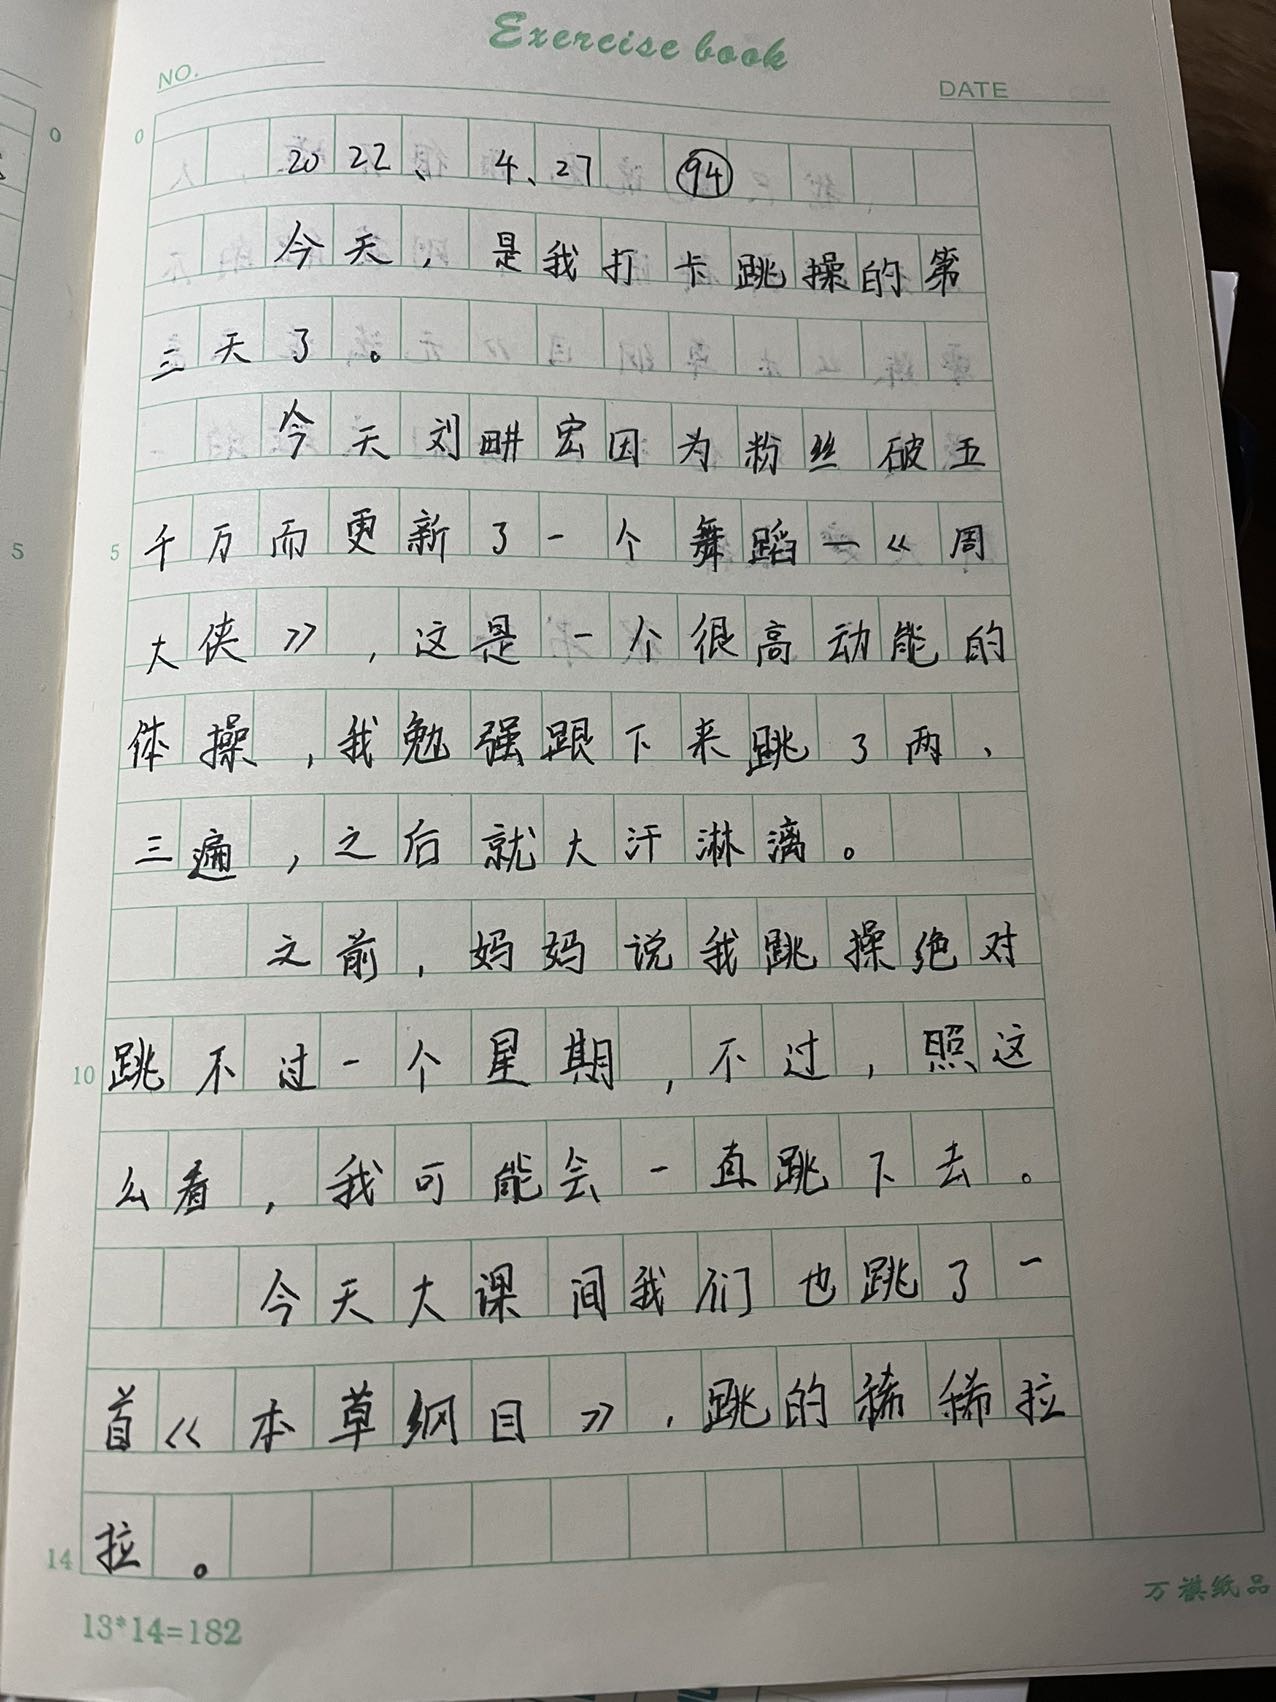 Exercise book
NO.
DATE
0
0
2022、4、27 94
今天，是我打卡跳操的第
三天了。
今天刘畊宏因为粉丝破五
5
5
千万而更新了一个舞蹈—《周
大侠》，这是一个很高动能的
体操，我勉强跟下来跳了两、
三遍，之后就大汗淋漓。
之前，妈妈说我跳操绝对
10
跳不过一个星期，不过，照这
么看，我可能会一直跳下去。
今天大课间我们也跳了一
首《本草纲目》，跳的稀稀拉
14
拉。
13*14=182
万祺纸品